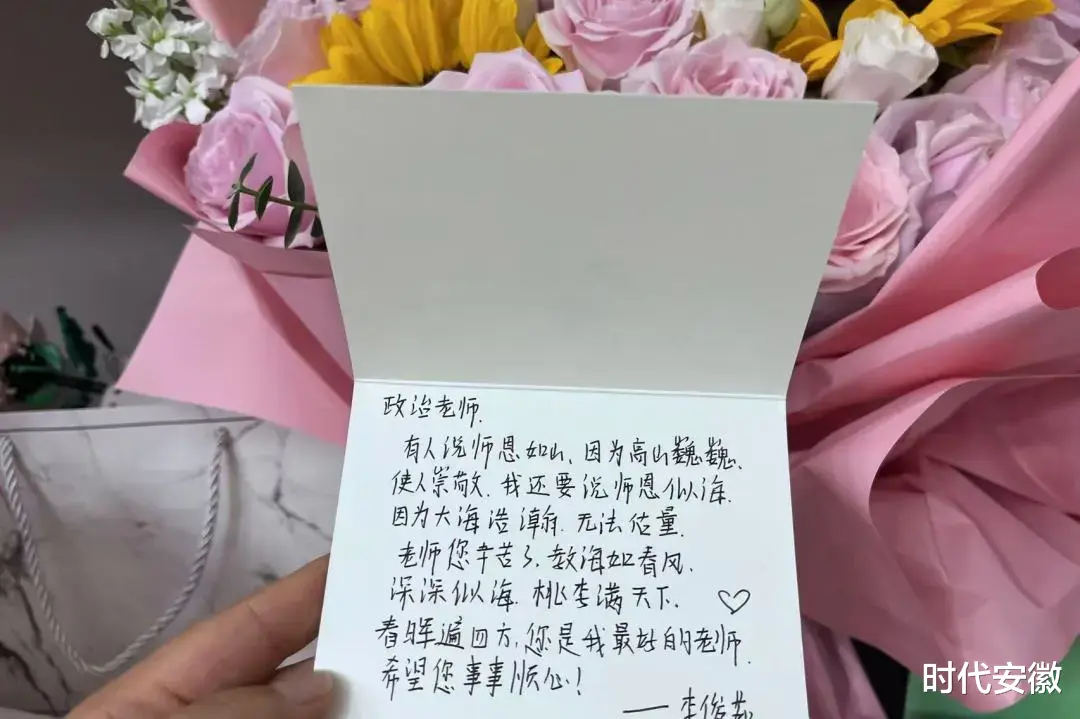 政治老师.
有人说师恩如山、因为高山巍巍.
使人崇敬.我还要说师恩似海.
因为大海浩瀚.无法估量.
老师您辛苦了.教海如春风.
深深似海.桃李满天下.
春晖遍四方,您是我最好的老师.
希望您事事顺心!
——李俊
时代安徽